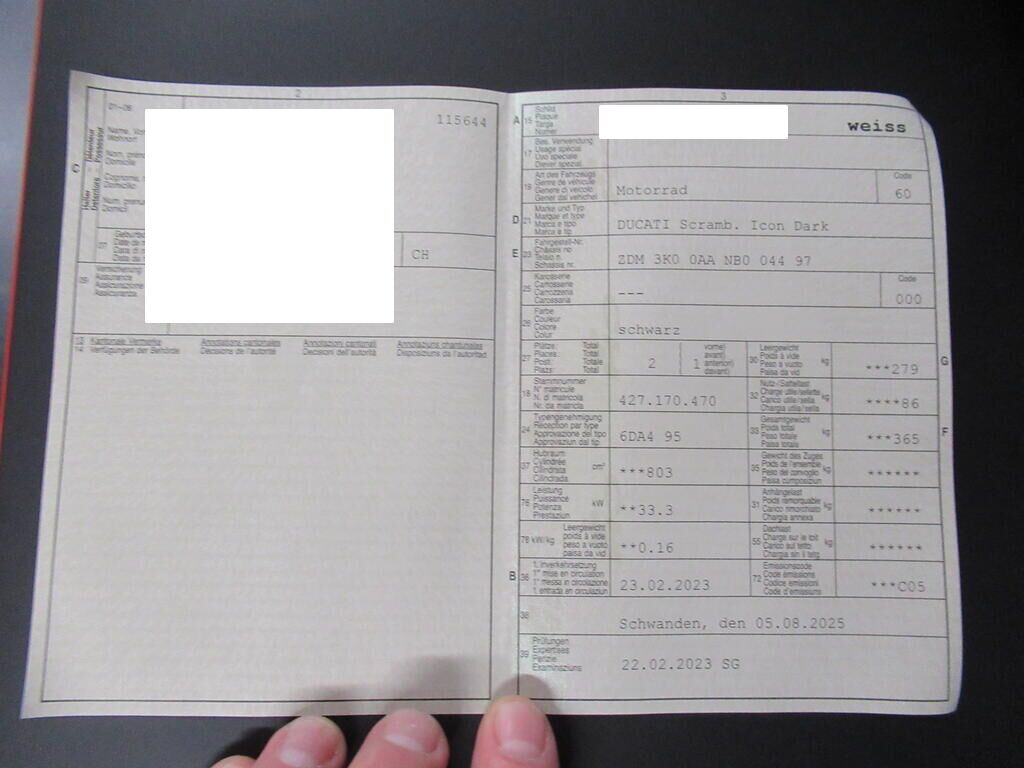 2
01-06
115644
C
Halter Détenteur
Detentore Possessur
Name, Vor
Wohnort
Nom, prén
Domicile
Cognome, n
Domicilio
Num, prenu
Domicil
07
Geburtsd
Date de n
Data di n
Data da n
CH
09
Versicherung
Assurance
Assicurazione
Assicuranza
13
14
Kantonale Vermerke
Verfügungen der Behörde
Annotations cantonales
Décisions de l'autorité
Annotazioni cantonali
Decisioni dell'autorità
Annotaziuns chantunalas
Disposiziuns da l'autoritad
3
A 15
Schild
Plaque
Targa
Numer
weiss
17
Bes. Verwendung
Usage spécial
Uso speciale
Diever spezial
19
Art des Fahrzeugs
Genre de véhicule
Genere di veicolo
Gener dal vehichel
Motorrad
Code
60
D 21
Marke und Typ
Marque et type
Marca e tipo
Marca e tip
DUCATI Scramb. Icon Dark
E 23
Fahrgestell-Nr.
Châssis no
Telaio n.
Schassis nr.
ZDM 3K0 0AA NB0 044 97
25
Karosserie
Carrosserie
Carrozzeria
Carossaria
---
Code
000
26
Farbe
Couleur
Colore
Colur
schwarz
27
Plätze: Total
Places: Total
Posti: Totale
Plazs: Total
2
vorne)
avant)
anteriori)
davant)
1
30
Leergewicht
Poids à vide
Peso a vuoto
Paisa da vid
kg
***279
G
18
Stammnummer
N° matricule
N. di matricola
Nr. da matricla
427.170.470
32
Nutz-/Sattellast
Charge utile/sellette
Carico utile/sella
Chargia utila/sella
kg
****86
24
Typengenehmigung
Réception par type
Approvazione del tipo
Approvaziun dal tip
6DA4 95
33
Gesamtgewicht
Poids total
Peso totale
Paisa totala
kg
***365
F
37
Hubraum
Cylindrée
Cilindrata
Cilindrada
cm³
***803
35
Gewicht des Zuges
Poids de l'ensemble
Peso del convoglio
Paisa cumposiziun
kg
******
76
Leistung
Puissance
Potenza
Prestaziun
kW
**33.3
31
Anhängelast
Poids remorquable
Carico rimorchiato
Chargia annexa
kg
******
78 kW/kg
Leergewicht
poids à vide
peso a vuoto
paisa da vid
**0.16
55
Dachlast
Charge sur le toit
Carico sul tetto
Chargia sin il tetg
kg
******
B 36
1. Inverkehrsetzung
1re mise en circulation
1a messa in circolazione
1. entrada en circulaziun
23.02.2023
72
Emissionscode
Code émissions
Codice emissioni
Code d'emissiuns
***C05
38
Schwanden, den 05.08.2025
39
Prüfungen
Expertises
Perizie
Examinaziuns
22.02.2023 SG